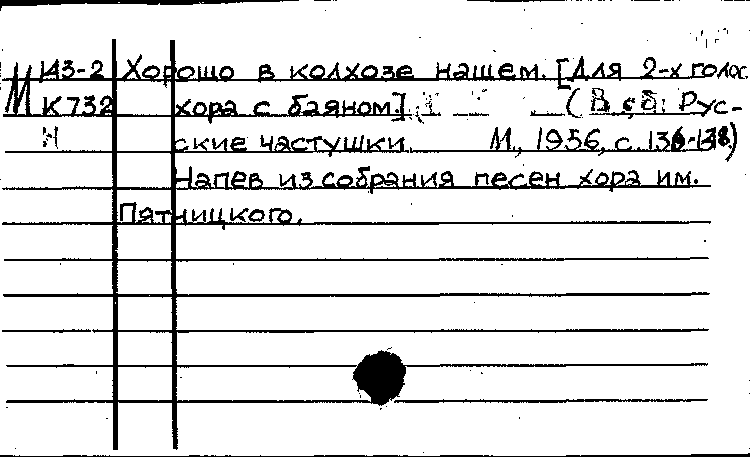 М 143-2 Хорошо в колхозе нашем. [Для 2-х голос.
К 732 хора с баяном] (В сб: Рус-
Н ские частушки. М., 1956, с. 136-138)
Напев из собрания песен хора им.
Пятницкого.